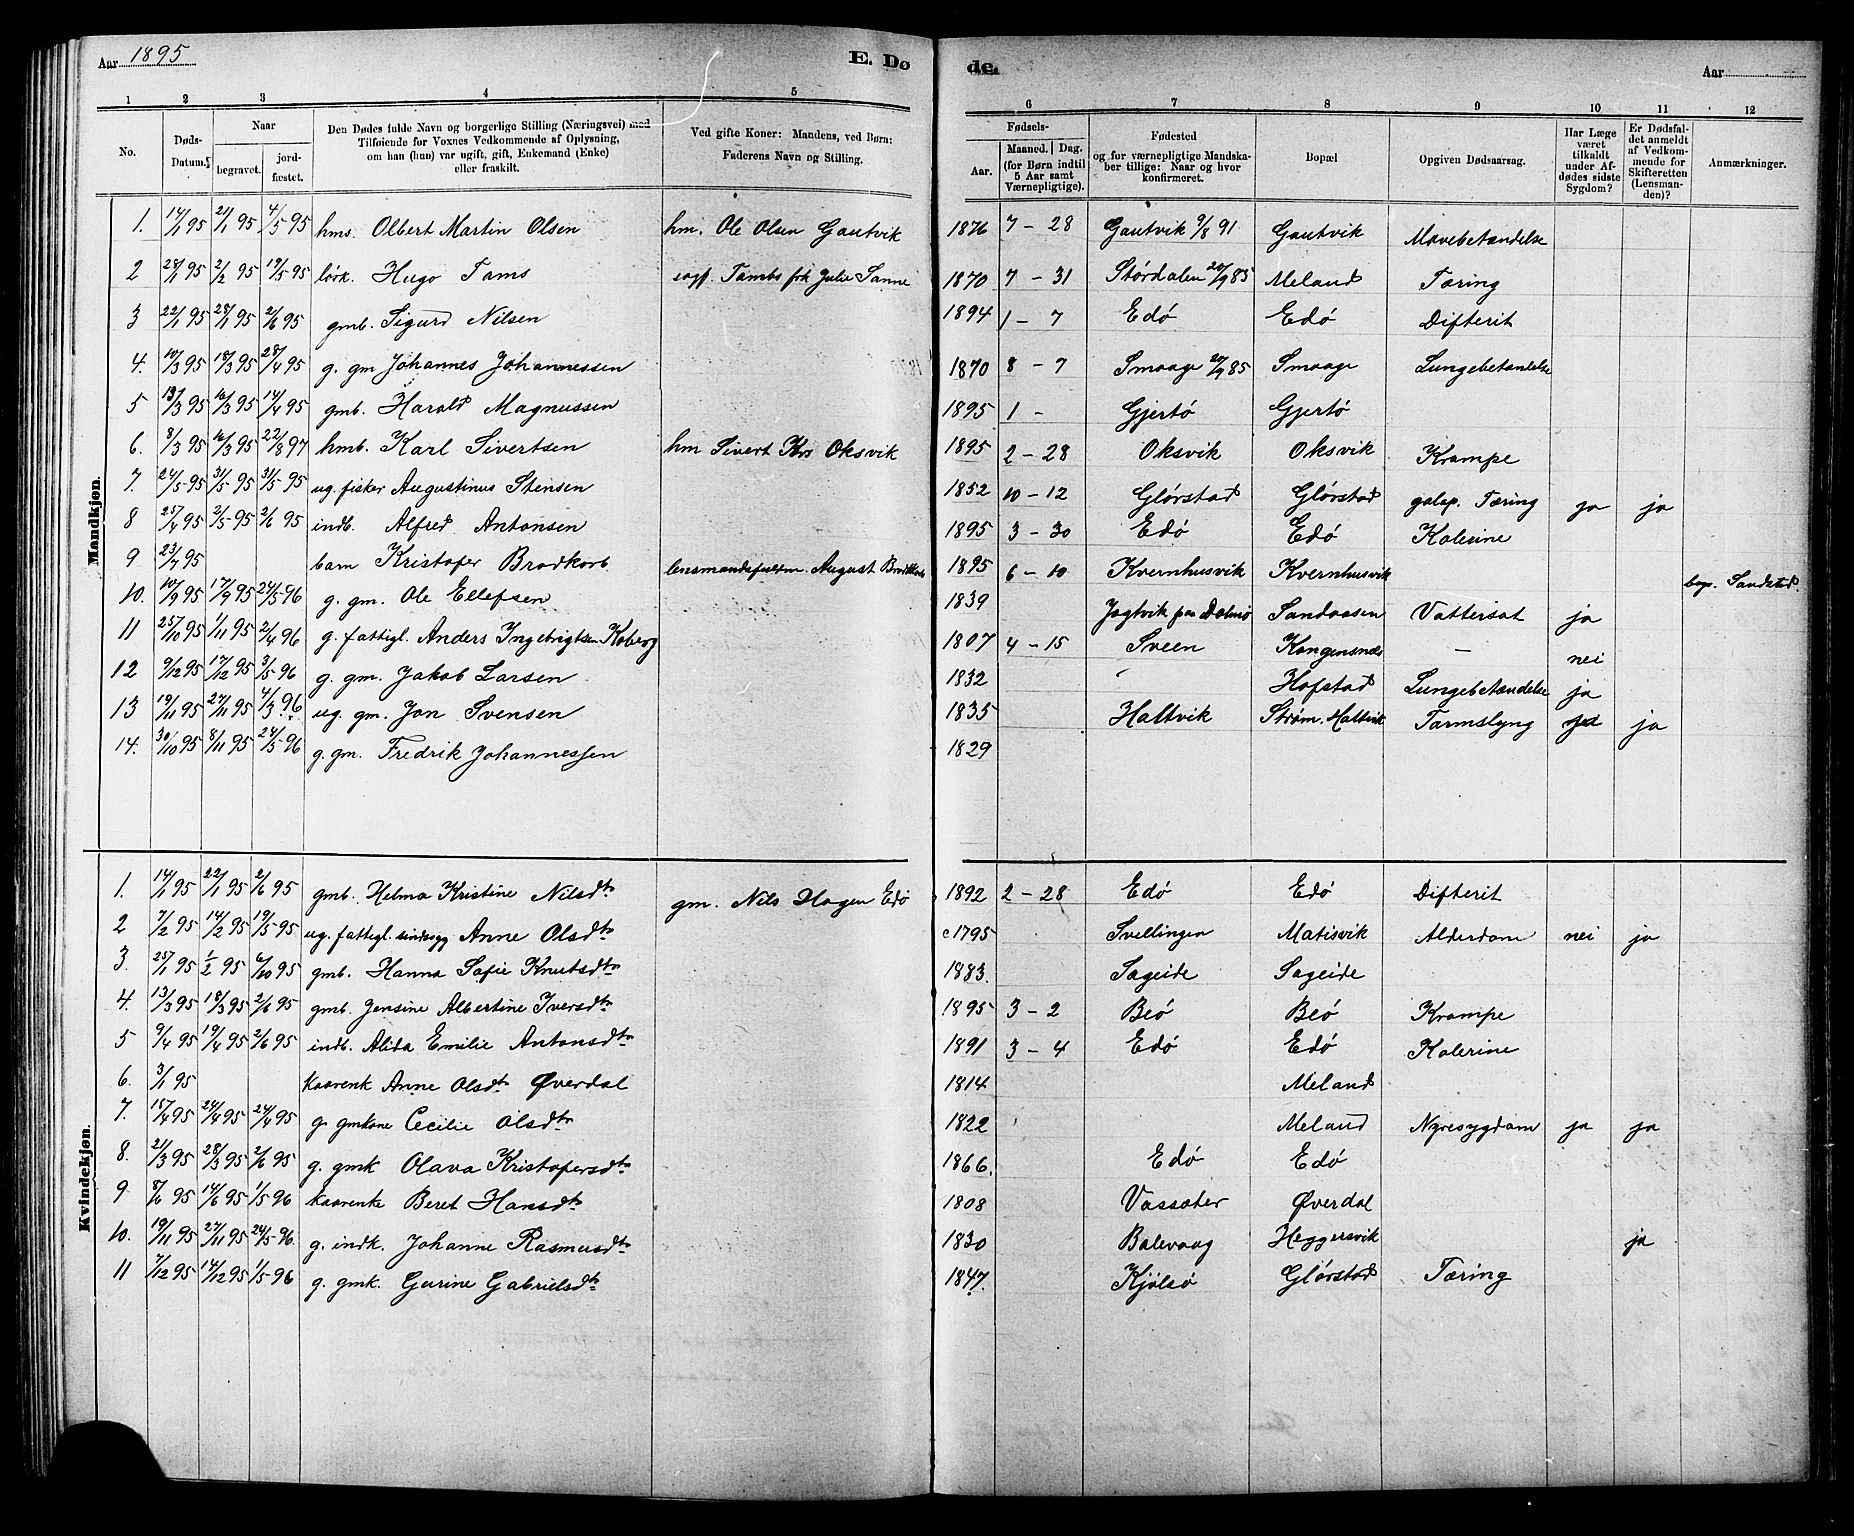 Aar 1895
E. Dø
de.
Aar
1 2 3 4 5
6 7 8 9 10 11 12
No.
Døds-Datum.
Naar
begravet.
jordfæstet.
Den Dødes fulde Navn og borgerlige Stilling (Næringsvei) med
Tilføiende for Voxnes Vedkommende af Oplysning,
om han (hun) var ugift, gift, Enkemand (Enke)
eller fraskilt.
Ved gifte Koner: Mandens, ved Børn:
Faderens Navn og Stilling.
Fødsels-
Aar.
Maaned. Dag.
(for Børn indtil
5 Aar samt
Værnepligtige).
Fødested
og for værnepligtige Mandskaber tillige: Naar og hvor
konfirmeret.
Bopæl
Opgiven Dødsaarsag.
Har Læge
været
tilkaldt
under Afdødes sidste
Sygdom?
Er Dødsfaldet anmeldt
af Vedkommende for
Skifteretten
(Lensmanden)?
Anmærkninger.
Mandkjøn.
1. 14/1 95 21/1 95 4/5 95 hms. Olbert Martin Olsen hm. Ole Olsen Gautvik 1876 7 - 28 Gautvik 9/8 91 Gautvik Mavebetændelse
2 28/1 95 2/2 95 19/5 95 lørk. Hugo Tams Tambs frk Julie Sanne 1870 7 - 31 Stórdalen 20/9 85 Meland Tæring
3 22/1 95 28/1 95 2/6 95 gmb. Sigurd Nilsen 1894 1 - 7 Edó Edó Difterit
4. 10/3 95 18/3 95 28/4 95 g. gm Johannes Johannessen 1870 8 - 7 Smaage 20/9 85 Smaage Lungebetændelse
5 13/3 95 16/3 95 14/4 95 gmb. Harald Magnussen 1895 1 - Gjertó Gjertó
6. 8/3 95 16/3 95 22/8 97 hmb. Karl Sivertsen hm Sivert Krs Oksvik 1895 2 - 28 Oksvik Oksvik Krampe
7. 24/5 95 31/5 95 31/5 95 ug. fisker Augustinus Stensen 1852 10 - 12 Glórstad Glórstad galop. Tæring ja ja
8 25/4 95 2/5 95 2/6 95 indb. Alfred Antonsen 1895 3 - 30 Edó Edó Kolerine
9 23/7 95 barn Kristofer Brodkorb lensmandsfuldm. August Brodtkorb 1895 6 - 10 Kvernhusvik Kvernhusvik
10. 10/9 95 17/9 95 24/5 96 g. gm. Ole Ellefsen 1839 Jogtvik paa Dolmø Sandaasen Vattersot ja bop. Sandstad.
11 25/10 95 1/11 95 2/4 96 g. fattigl. Anders Ingebrigtsen Koberg 1807 4 - 15 Sveen Kongensnes — nei
12 9/12 95 17/12 95 3/5 96 g. gm. Jakob Larsen 1832 Hofstad Lungebetændelse ja
13 19/11 95 27/11 95 4/3 96 ug. gm. Jon Svensen 1835 Haltvik Strøm. Haltvik Tarmslyng ja ja
14. 30/10 95 8/11 95 24/5 96 g. gm. Fredrik Johannessen 1829
Kvindekjøn.
1. 14/1 95 22/1 95 2/6 95 gmb. Helma Kristine Nilsdtr gm. Nils Hagen Edø 1892 2 - 28 Edø Edø Difterit
2 7/2 95 14/2 95 19/5 95 ug. fattigl. sindssyg Anne Olsdtr c1795 Svellingen Matisvik Alderdom nei ja
3. 25/1 95 1/2 95 6/10 95 gmb. Hanna Sofie Knutsdtr 1883. Sageide Sageide
4. 13/3 95 18/3 95 2/6 95 gmb. Jensine Albertine Iversdtr 1895 3 - 2 Beó Beó Krampe
5 9/4 95 19/4 95 2/6 95 indb. Alida Emilie Antonsdtr 1891 3 - 4 Edó Edó Kolerine
6. 3/1 95 kaarenk Anne Olsdtr Øverdal 1814 Meland
7. 15/4 95 24/4 95 24/4 95 g. gmkone Cecilie Olsdtr 1822 Meland Nyresygdom ja ja
8. 21/3 95 28/3 95 2/6 95 g. gmk Olava Kristofersdtr 1866. Edó Edó
9 8/6 95 14/6 95 1/5 96 kaarenke Beret Hansdtr 1808 Vassæter Øverdal
10. 19/11 95 27/11 95 24/5 96 g. indk. Johanne Rasmusdtr 1830 Balevaag Heggersvik ja
11 7/12 95 14/12 95 1/5 96 g. gmk. Gurine Gabrielsdtr 1847. Kjólsó Glórstad Tæring